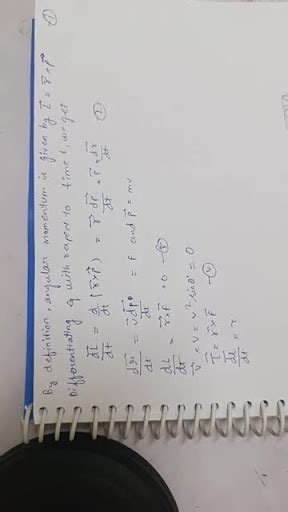 By definition, angular momentum is given by L⃗ = r⃗ × p⃗ ①
Differentiating eq with respect to time t, we get
dL⃗/dt = d/dt (r⃗×p⃗) = r⃗ dp⃗/dt + p⃗ × dr⃗/dt ②
= v⃗ = F and p⃗ = mv
dL/dt = r⃗×F + 0 - ④
v⃗ × v = v² sin0° = 0
τ⃗ = r⃗×F - ⑤
dL⃗/dt = τ